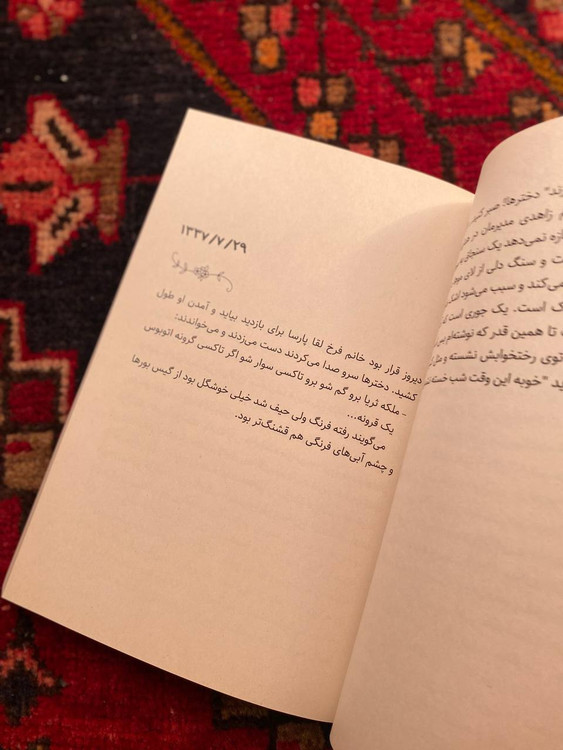 ۱۳۳۷/۷/۲۹
دیروز قرار بود خانم فرخ لقا پارسا برای بازدید بیاید و آمدن او طول
کشید. دخترها سرو صدا می‌کردند دست می‌زدند و می‌خواندند:
- ملکه ثریا برو گم شو برو تاکسی سوار شو اگر تاکسی گرونه اتوبوس
یک قرونه...
می‌گویند رفته فرنگ ولی حیف شد خیلی خوشگل بود از گیس بورها
و چشم آبی‌های فرنگی هم قشنگ‌تر بود.
ند" دخترها! صبر کنید
زاهدی مدیرمان در
ازه نمی‌دهد یک سنجاق
ت و سنگ دلی از لای
می‌کند و سبب می‌شود
ک است. یک جوری است
تا همین قدر که نوشته‌ام
توی رختخوابش نشسته و
ید "خوبه این وقت شب خسته